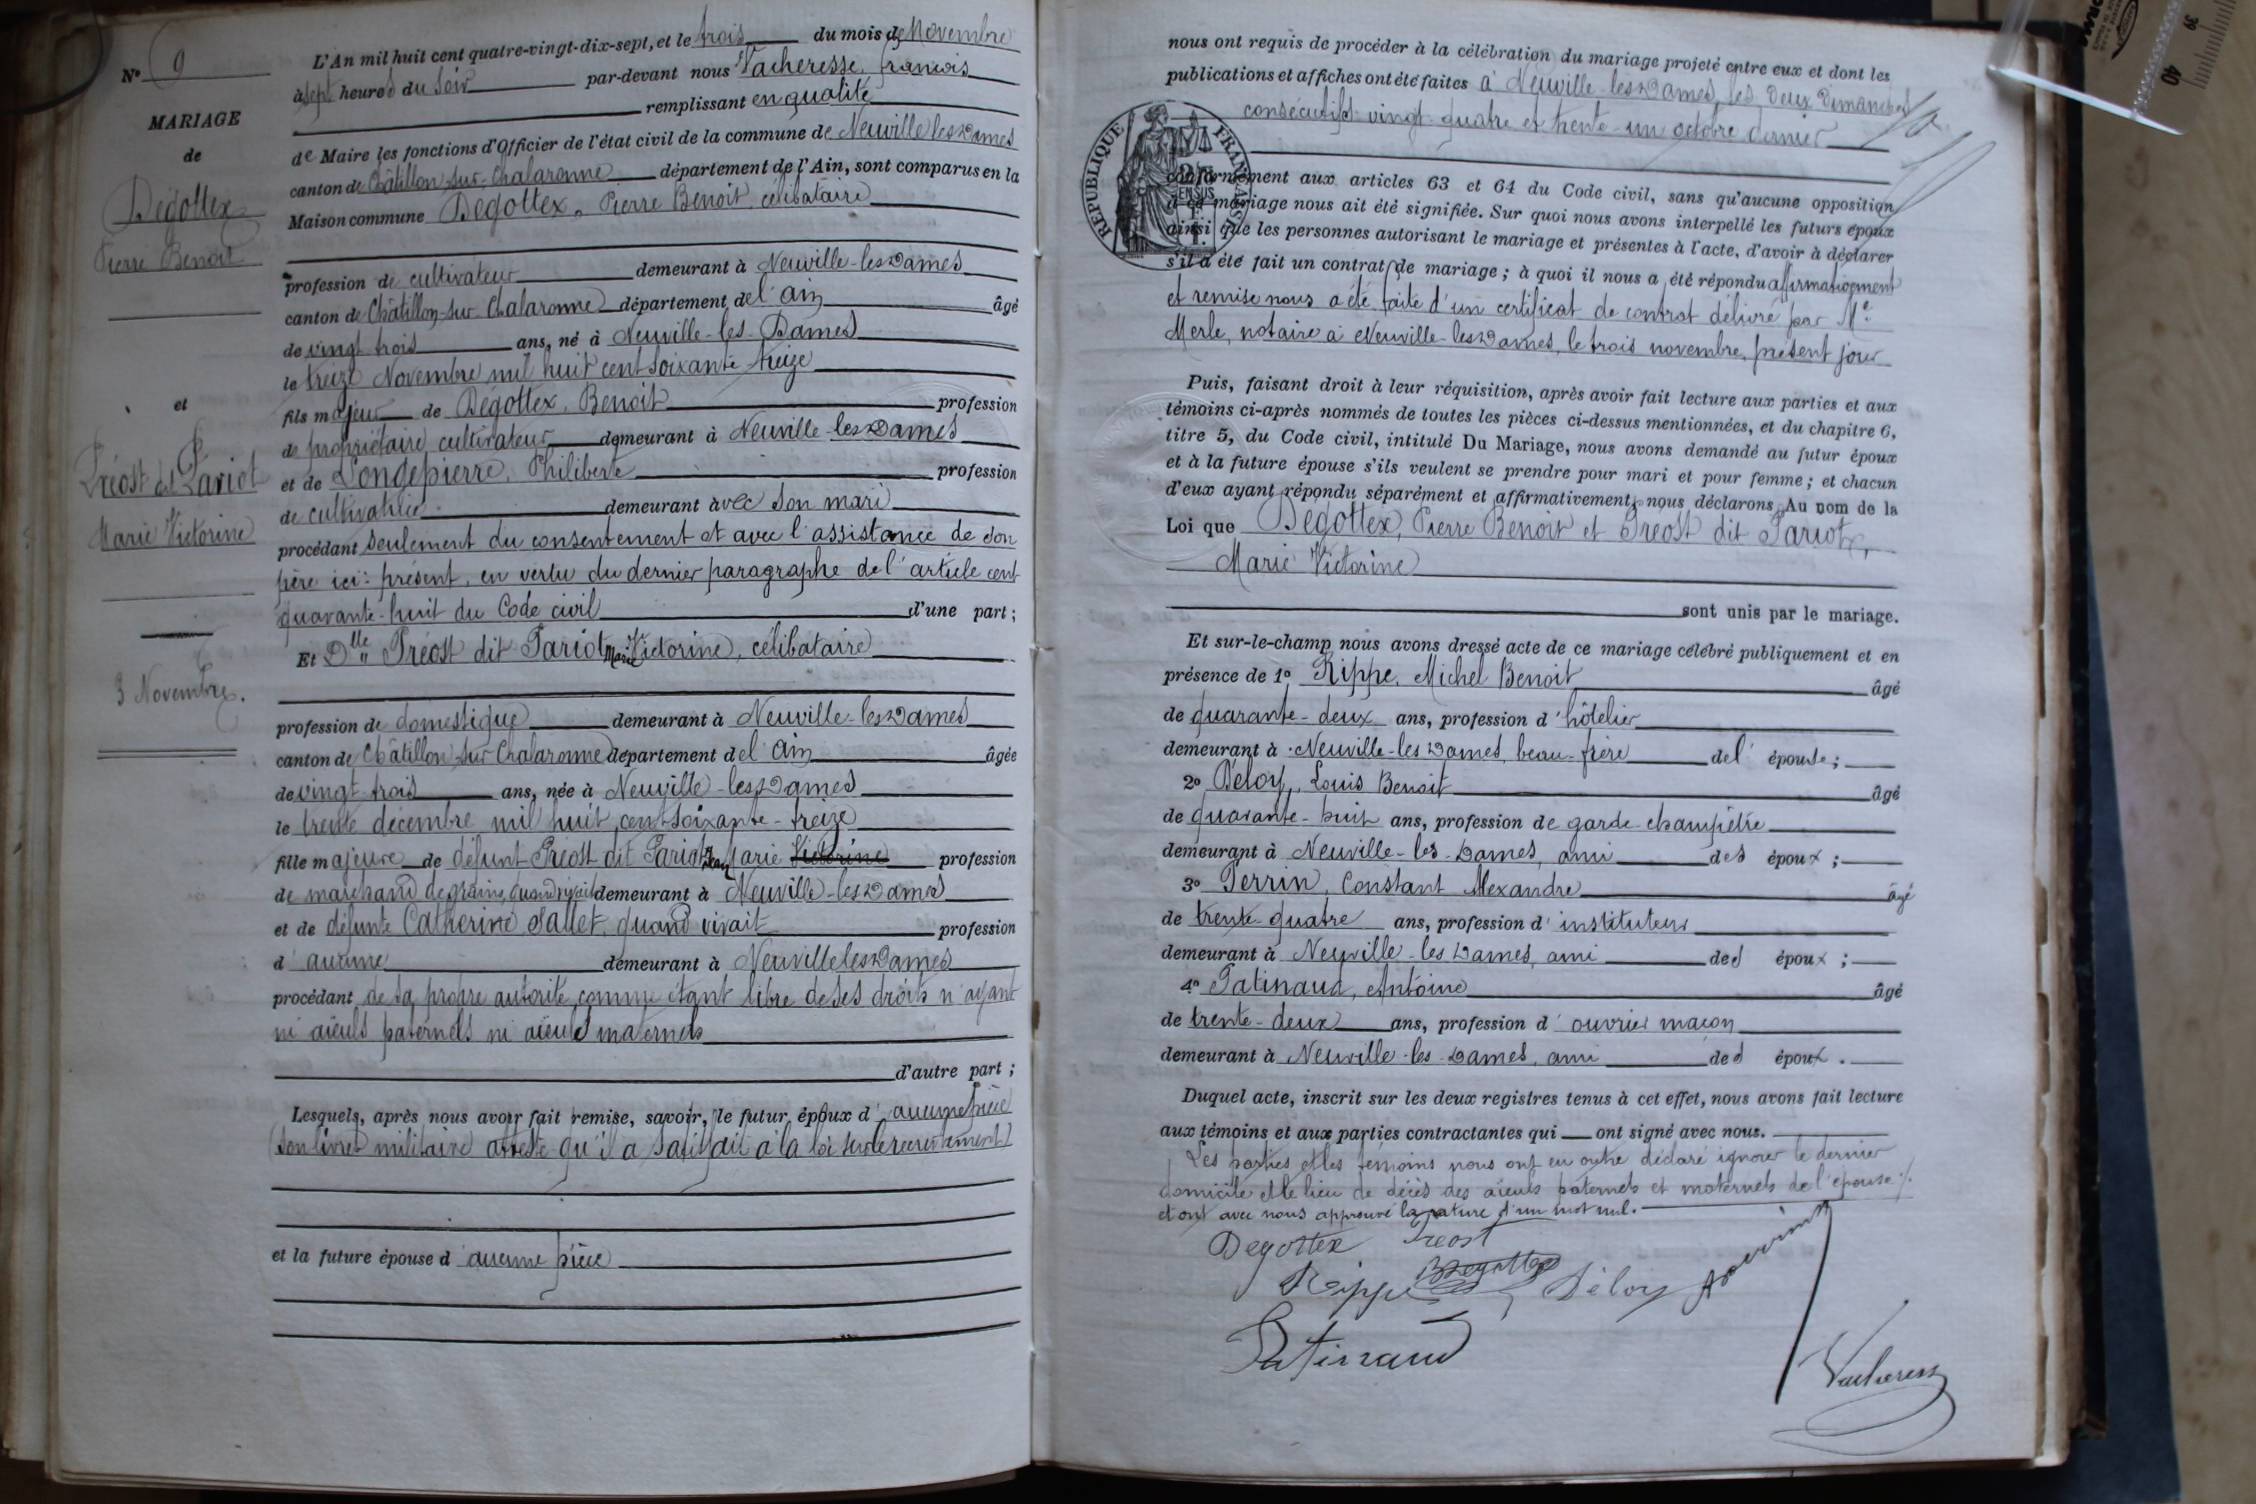 N° 9
MARIAGE
de
Dégottex
Pierre Benoit
et
Préost dit Pariot
Marie Victorine
3 Novembre.
L'An mil huit cent quatre-vingt-dix-sept, et le trois du mois de Novembre
à sept heures du soir par-devant nous Vacheresse, francois
remplissant en qualité
de Maire les fonctions d'Officier de l'état civil de la commune de Neuville les Dames
canton de Châtillon-sur-Chalaronne département de l'Ain, sont comparus en la
Maison commune Dégottex, Pierre Benoit, célibataire
profession de cultivateur demeurant à Neuville-les-Dames
canton de Châtillon-sur-Chalaronne département de l'ain âgé
de vingt trois ans, né à Neuville-les-Dames
le treize Novembre mil huit cent soixante treize
fils majeur de Dégottex, Benoit profession
de propriétaire cultivateur demeurant à Neuville-les-Dames
et de Longepierre, Philiberte profession
de cultivatrice demeurant avec son mari
procédant seulement du consentement et avec l'assistance de son
père ici présent, en vertu du dernier paragraphe de l'article cent
quarante-huit du Code civil d'une part ;
Et Dlle Préost dit Pariot Marie Victorine, célibataire
profession de domestique demeurant à Neuville-les-Dames
canton de Châtillon-sur-Chalaronne département de l'ain âgée
de vingt-trois ans, née à Neuville-les-Dames
le trente décembre mil huit cent soixante-treize
fille majeure de défunt Préost dit Pariot, Jean Marie Victorine profession
de marchand de grains, quand vivait demeurant à Neuville-les-Dames
et de défunte Catherine Sallet, quand vivait profession
d'aucune demeurant à Neuville les Dames
procédant de sa propre autorité, comme étant libre de ses droits n'ayant
ni aïeuls paternels ni aïeuls maternels
d'autre part ;
Lesquels, après nous avoir fait remise, savoir, le futur époux d'aucune pièce
(son livret militaire atteste qu'il a satisfait à la loi sur le recrutement)
et la future épouse d'aucune pièce
nous ont requis de procéder à la célébration du mariage projeté entre eux et dont les
publications et affiches ont été faites à Neuville-les-Dames, les deux Dimanches
consécutifs vingt-quatre et trente-un octobre dernier
RÉPUBLIQUE FRANÇAISE
conformément aux articles 63 et 64 du Code civil, sans qu'aucune opposition
à ce mariage nous ait été signifiée. Sur quoi nous avons interpellé les futurs époux
ainsi que les personnes autorisant le mariage et présentes à l'acte, d'avoir à déclarer
s'il a été fait un contrat de mariage ; à quoi il nous a été répondu affirmativement
et remise nous a été faite d'un certificat de contrat délivré par Me
Merle, notaire à Neuville-les-Dames, le trois novembre, présent jour
Puis, faisant droit à leur réquisition, après avoir fait lecture aux parties et aux
témoins ci-après nommés de toutes les pièces ci-dessus mentionnées, et du chapitre 6,
titre 5, du Code civil, intitulé Du Mariage, nous avons demandé au futur époux
et à la future épouse s'ils veulent se prendre pour mari et pour femme ; et chacun
d'eux ayant répondu séparément et affirmativement, nous déclarons Au nom de la
Loi que Dégottex, Pierre Benoit et Préost dit Pariot,
Marie Victorine
sont unis par le mariage.
Et sur-le-champ nous avons dressé acte de ce mariage célébré publiquement et en
présence de 1° Rippe, Michel Benoit âgé
de quarante-deux ans, profession d'hôtelier
demeurant à Neuville-les-Dames, beau-frère de l'épouse ;
2° Déloy, Louis Benoit âgé
de quarante-huit ans, profession de garde-champêtre
demeurant à Neuville-les-Dames, ami des époux ;
3° Perrin, Constant Alexandre âgé
de trente-quatre ans, profession d'instituteur
demeurant à Neuville-les-Dames, ami des époux ;
4° Patinaud, Antoine âgé
de trente-deux ans, profession d'ouvrier maçon
demeurant à Neuville-les-Dames, ami des époux.
Duquel acte, inscrit sur les deux registres tenus à cet effet, nous avons fait lecture
aux témoins et aux parties contractantes qui ont signé avec nous.
Les parties et les témoins nous ont en outre déclaré ignorer le dernier
domicile et le lieu de décès des aïeuls paternels et maternels de l'épouse ./.
et ont avec nous approuvé la rature d'un mot nul.
Degottex Preost
Rippe BDegottex Déloy Perrin
Patinaud
Vacheresse
40
39